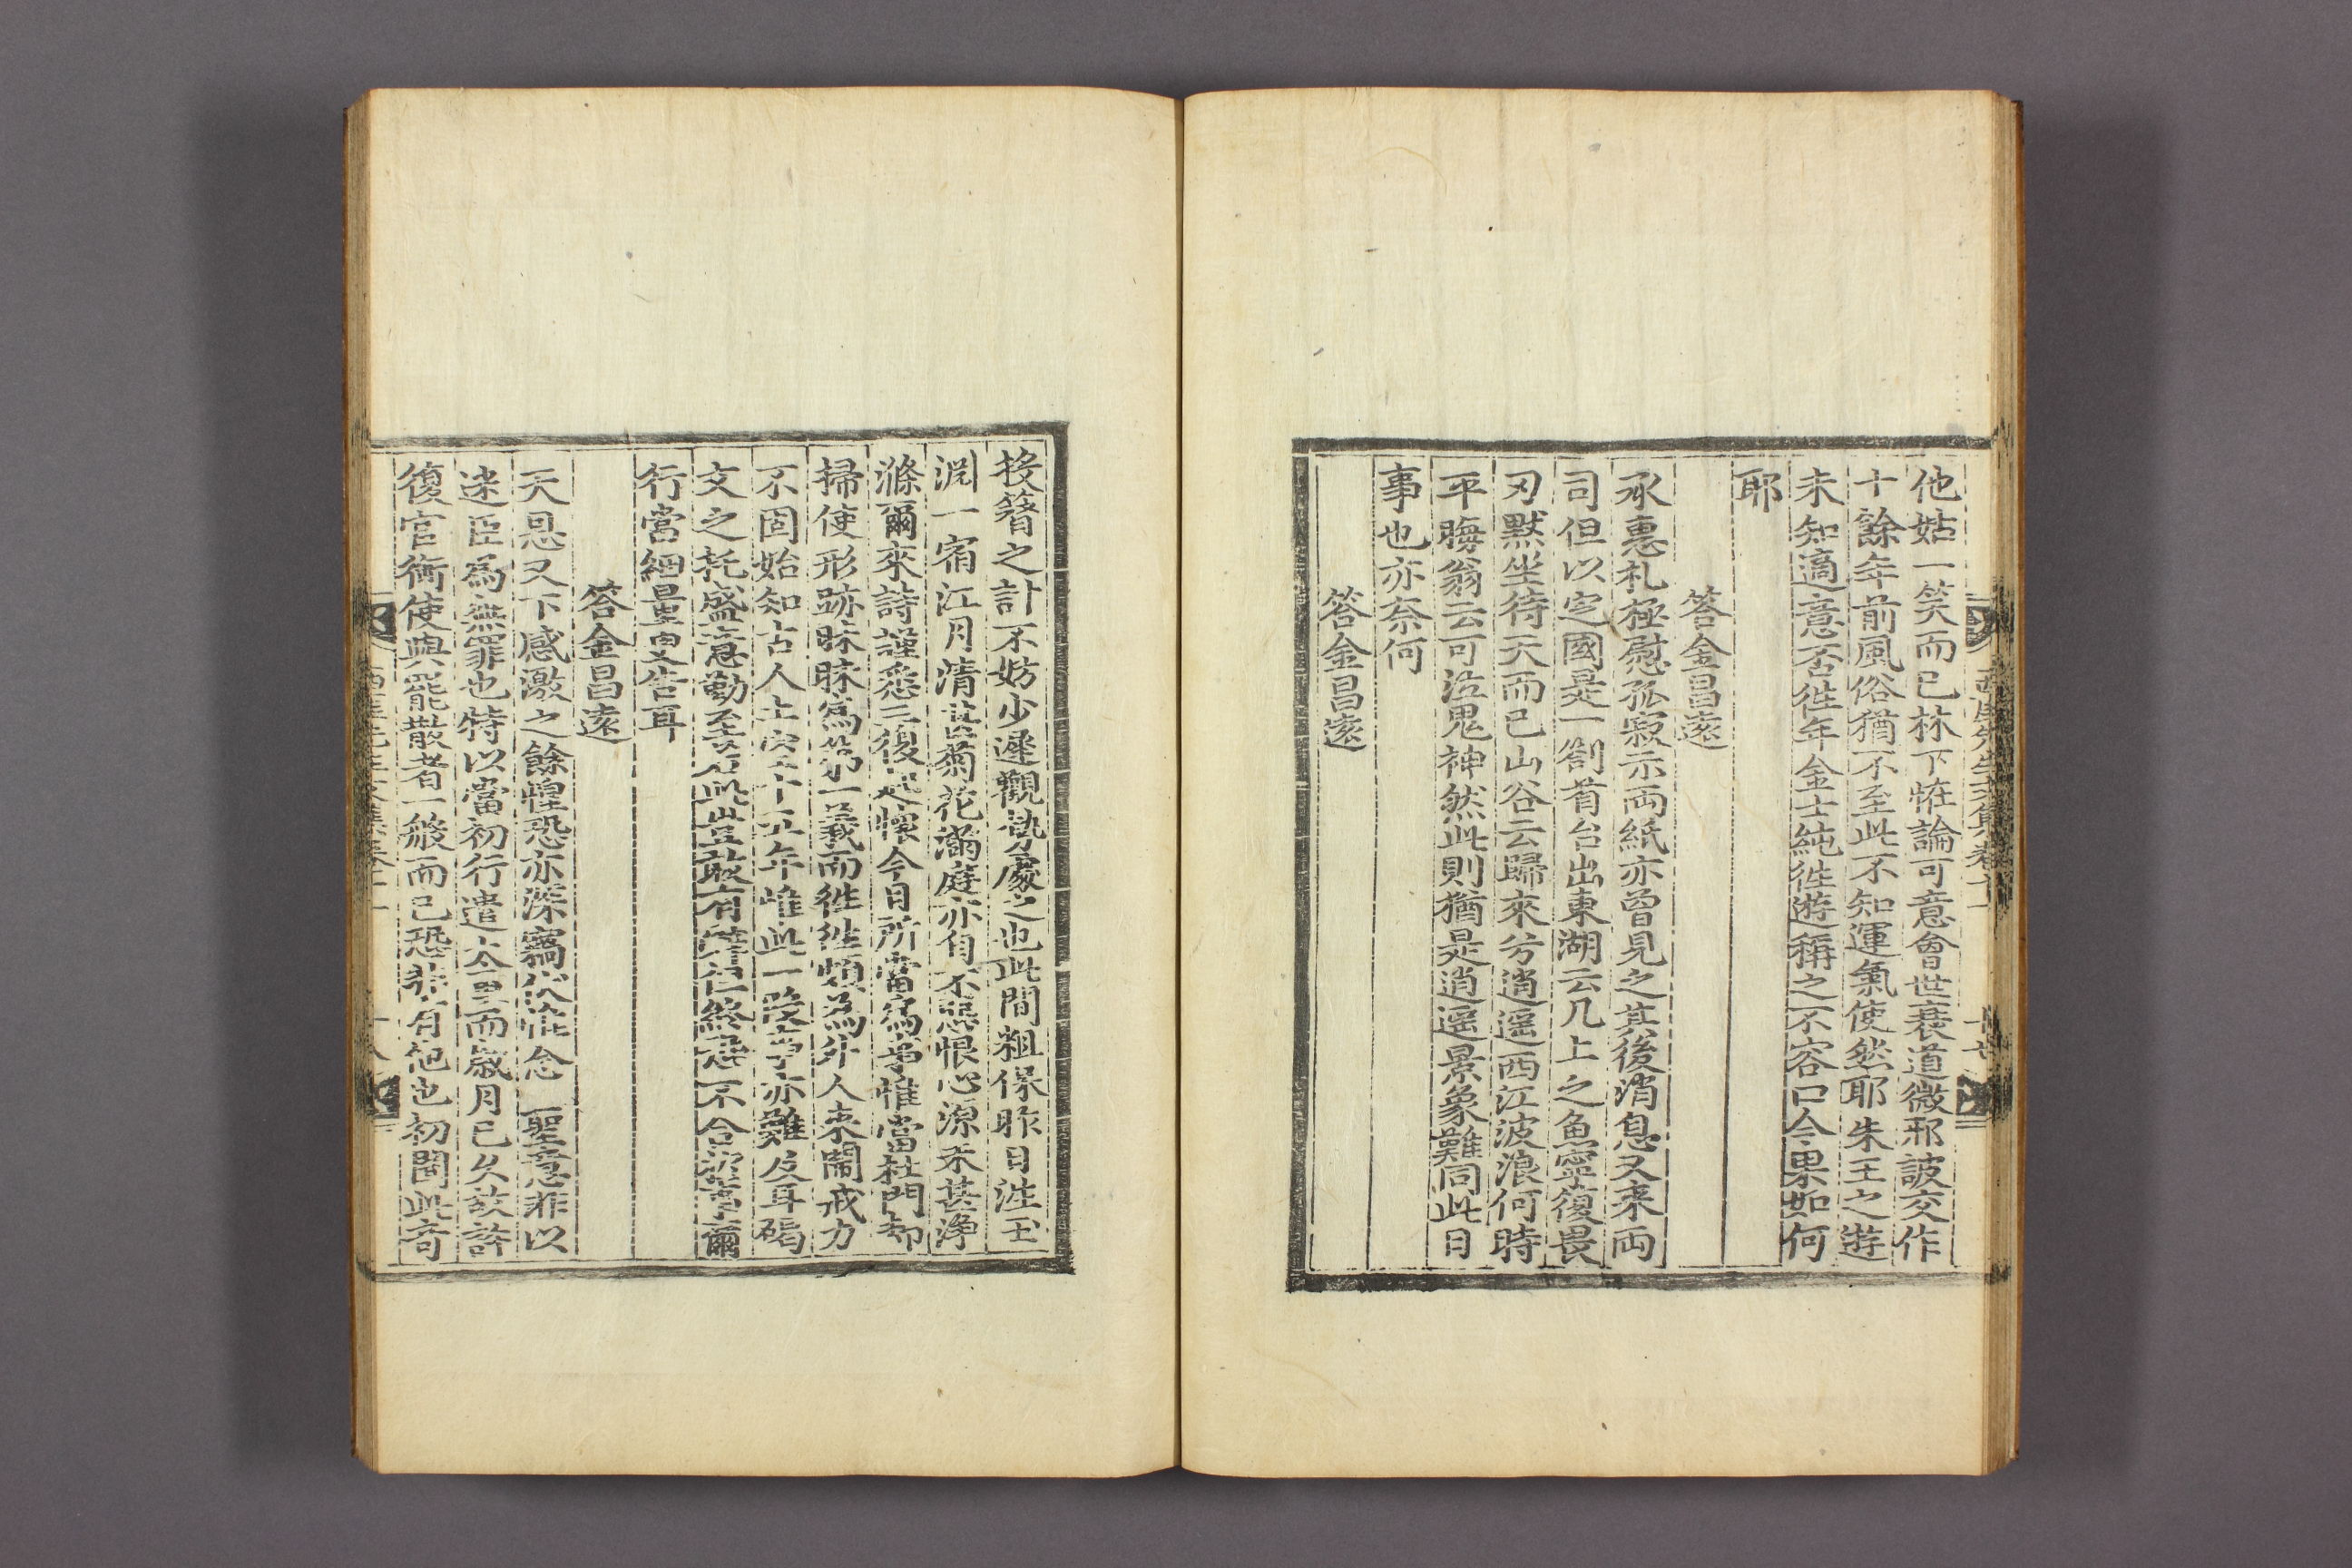 他姑一笑而已林下恠論可意會世衰道微邪詖交作
十餘年前風俗猶不至此不知運氣使然耶朱王之遊
未知適意否徃年金士純徃遊稱之不容口今果如何
耶
答金昌遠
承惠札極慰孤寂示両紙亦曾見之其後消息又来両
司但以定國是一劄胥台出東湖云几上之魚寧復畏
刃黙坐待天而已山谷云歸來兮逍遥西江波浪何時
平晦翁云可泣鬼神然此則猶是逍遥景象難同此日
事也亦奈何
答金昌遠
投簪之計不妨少遲觀勢處之也此間粗保昨日泩玉
淵一宿江月清甚菊花滿庭亦自不惡恨心源未甚淨
滌爾來詩謹悉三復起懷今日所當爲事惟當杜門却
掃使形跡昧昧爲第一義而徃徃煩爲外人来鬧戒力
不固始知古人土室三十五年唯此一段事亦難及耳碣
文之托盛意勤至若此豈敢有
行當細量更告耳
答金昌遠
天恩又下感激之餘惶恐亦深竊伏惟念 聖意非以
迷臣爲無罪也特以當初行遣太重而歳月已久故許
復官銜使與罷散者一般而已恐非有他也初聞此奇